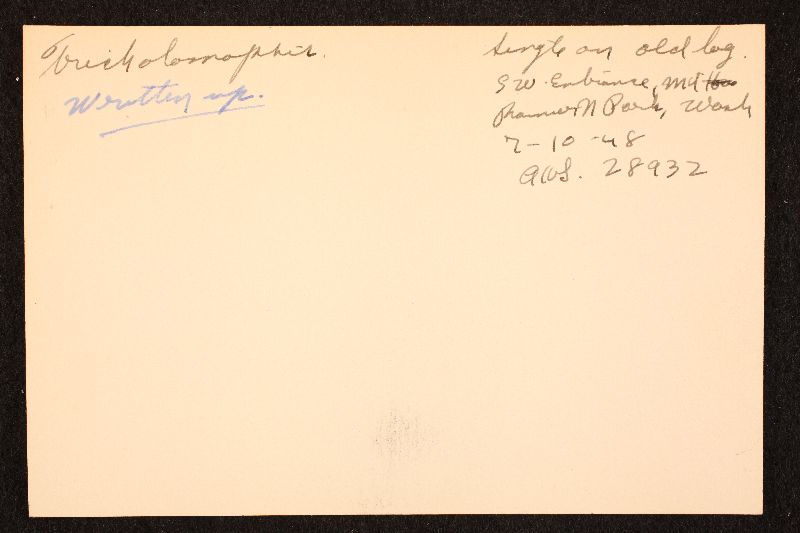 Tricholomopsis.
Written up.
single on old log.
SW. Entrance, Mt
Rainier N Park, Wash
7-10-48
AHS. 28932